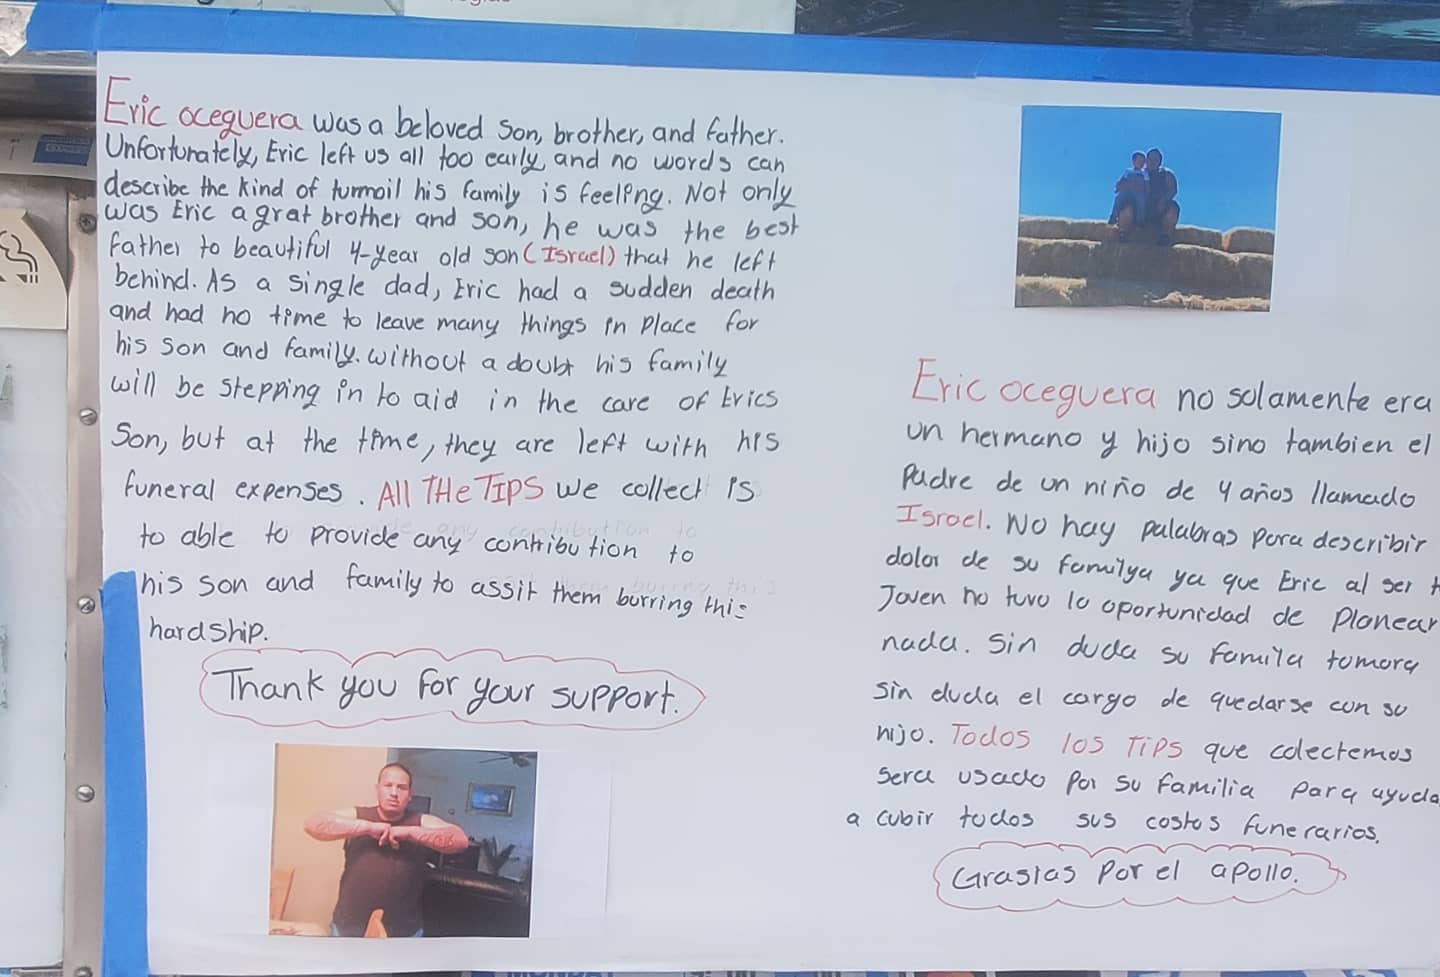 Eric oceguera was a beloved son, brother, and father.
Unfortunately, Eric left us all too early, and no words can
describe the kind of turmoil his family is feeling. Not only
was Eric a grat brother and son, he was the best
father to beautiful 4-year old son (Israel) that he left
behind. As a single dad, Eric had a sudden death
and had no time to leave many things in place for
his son and family. without a doubt his family
will be stepping in to aid in the care of Erics
Son, but at the time, they are left with his
funeral expenses. All THe TIPS we collect is
to able to provide any contribution to
his son and family to assit them burring this
hardship.
Thank you for your support.
Eric oceguera no solamente era
un hermano y hijo sino tambien el
Padre de un niño de 4 años llamado
Israel. No hay palabras para describir
dolor de su familya ya que Eric al ser t
Joven no tuvo la oportunidad de Planear
nada. Sin duda su familia tomara
sin duda el cargo de quedarse con su
hijo. Todos los TiPS que colectemos
sera usado por su familia para ayuda
a cubir todos sus costos funerarios.
Grasias Por el apollo.